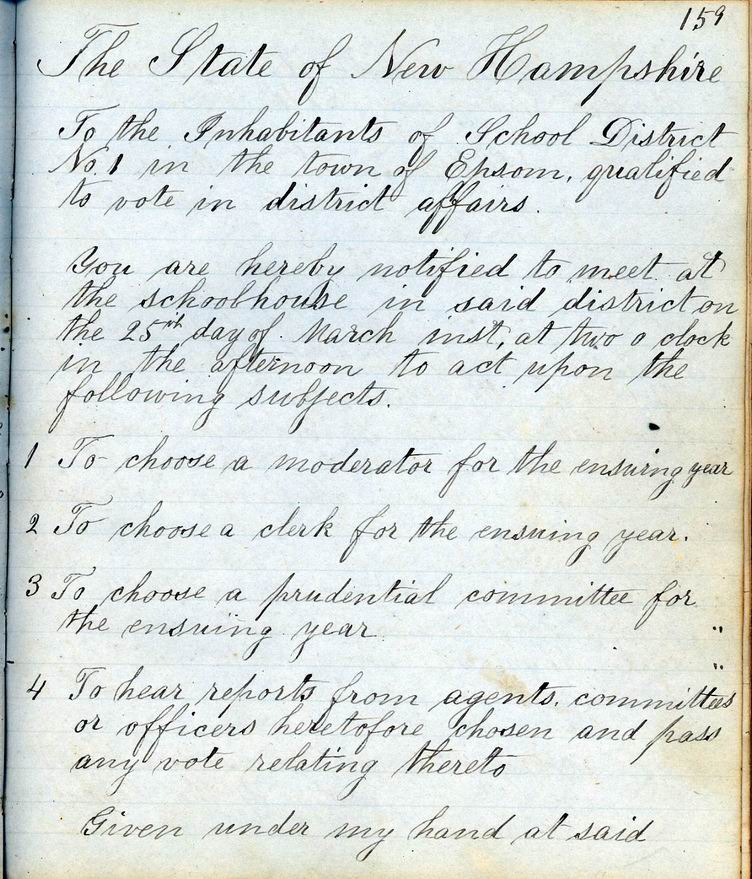 159
The State of New Hampshire
To the Inhabitants of School District
No. 1 in the town of Epsom, qualified
to vote in district affairs.
You are hereby notified to meet at
the schoolhouse in said district on
the 25th day of March inst, at two o clock
in the afternoon to act upon the
following subjects.
1 To choose a moderator for the ensuing year
2 To choose a clerk for the ensuing year.
3 To choose a prudential committee for
the ensuing year "
"
4 To hear reports from agents, committees
or officers heretofore chosen and pass
any vote relating thereto
Given under my hand at said